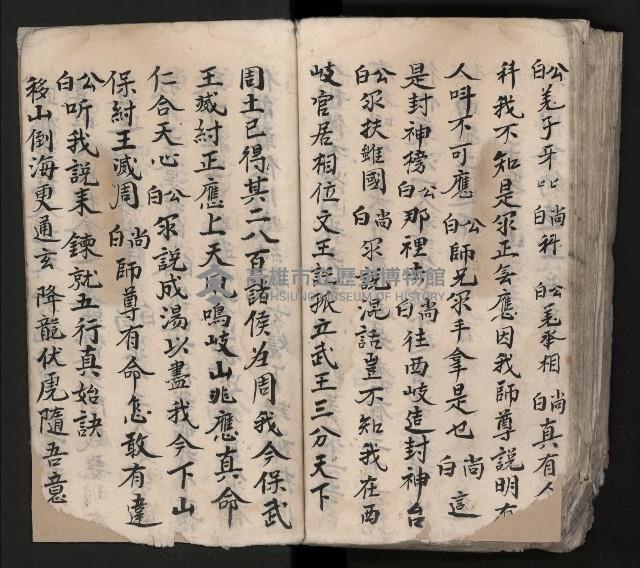 公白羌子牙比尚白科 公白羌丞相尚白真有人
科我不知是尔正無應因我師尊説明有
人呌不可應公白師兄尔手拿是也尚白這
是封神榜公白那裡去尚白往西岐造封神台
公白尔扶誰國尚白尔説混話豈不知我在西
岐官居相位文王説振立武王三分天下
周土已得其二八百諸侯為周我今保武
王威紂正應上天鳳鳴岐山兆應真命
仁合天心公白尔説成湯以盡我今下山
保紂王滅凋尚白師尊有命怎敢有違
公白听我説来 鍊就五行真始訣
移山倒海更通玄 降龍伏虎隨吾意
高雄市立歷史博物館
KAOHSIUNG MUSEUM OF HISTORY